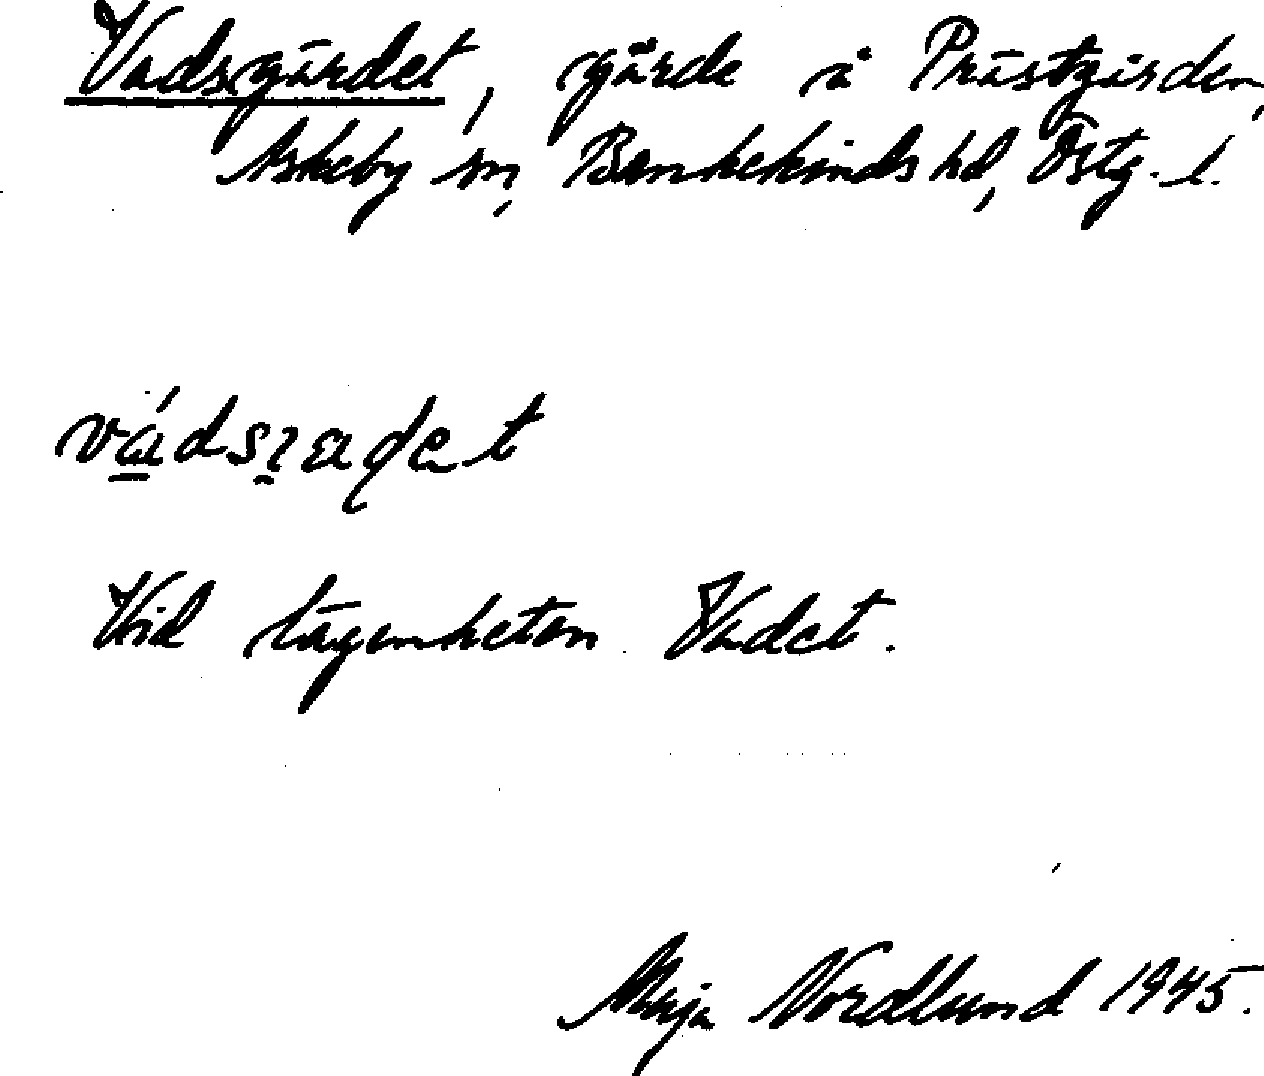 Vadsgärdet, gärde å Prästgården,
Askeby sn, Bankekinds hd, Östg. l.
Vid lägenheten Vadet.
Maja Nordlund 1945.